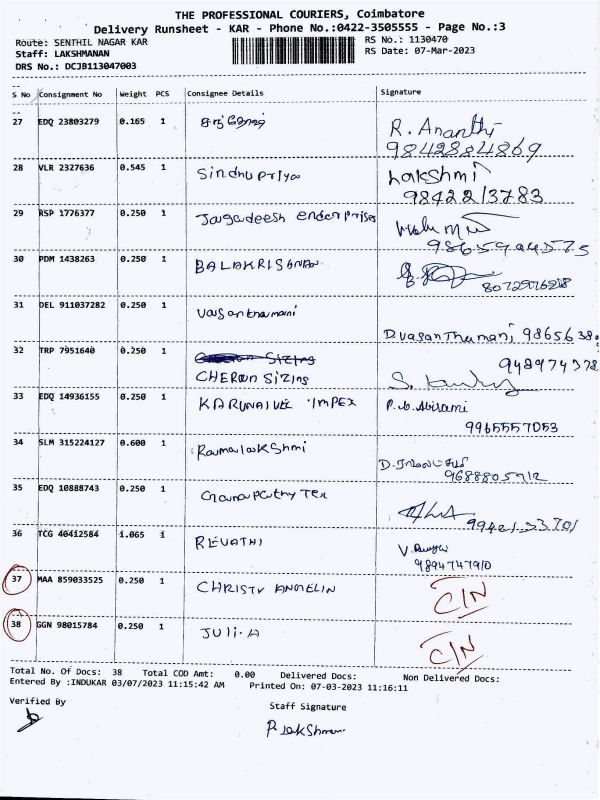 THE PROFESSIONAL COURIERS, Coimbatore
Delivery Runsheet - KAR - Phone No.:0422-3505555 - Page No.:3
Route: SENTHIL NAGAR KAR
RS No.: 1130470
Staff: LAKSHMANAN
RS Date: 07-Mar-2023
DRS No.: DCJB113047003
S No Consignment No Weight PCS Consignee Details Signature
27 EDQ 23803279 0.165 1 R. Ananthi
9842884869
28 VLR 2327636 0.545 1 Sindhu priya Lakshmi
98422 13783
29 RSP 1776377 0.250 1 Jagadeesh enderprises
30 PDM 1438263 0.250 1 BALAKRISHNAN
31 DEL 911037282 0.250 1 Vasanthamani
D Vasanthamani, 9865638
32 TRP 7951640 0.250 1
CHERON Sizing
33 EDQ 14936155 0.250 1 KARUNAIVEL IMPEX P.B. Abirami
9965557053
34 SLM 315224127 0.600 1 Ramalakshmi
9688805912
35 EDQ 10888743 0.250 1 Ganapathy Tex
36 TCG 40412584 1.065 1 REVATHI
9894747910
37 MAA 859033525 0.250 1 CHRISTY ANGELIN C/N
38 GGN 98015784 0.250 1 JULI-A C/N
Total No. Of Docs: 38 Total COD Amt: 0.00 Delivered Docs: Non Delivered Docs:
Entered By :INDUKAR 03/07/2023 11:15:42 AM Printed On: 07-03-2023 11:16:11
Verified By
Staff Signature
P Lakshman